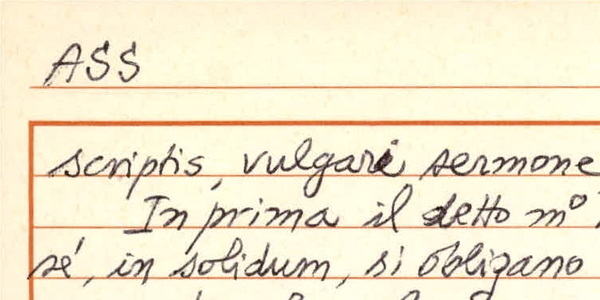 ASS
scriptis, vulgari sermone
In prima il detto mº
sé, in solidum, si obligano